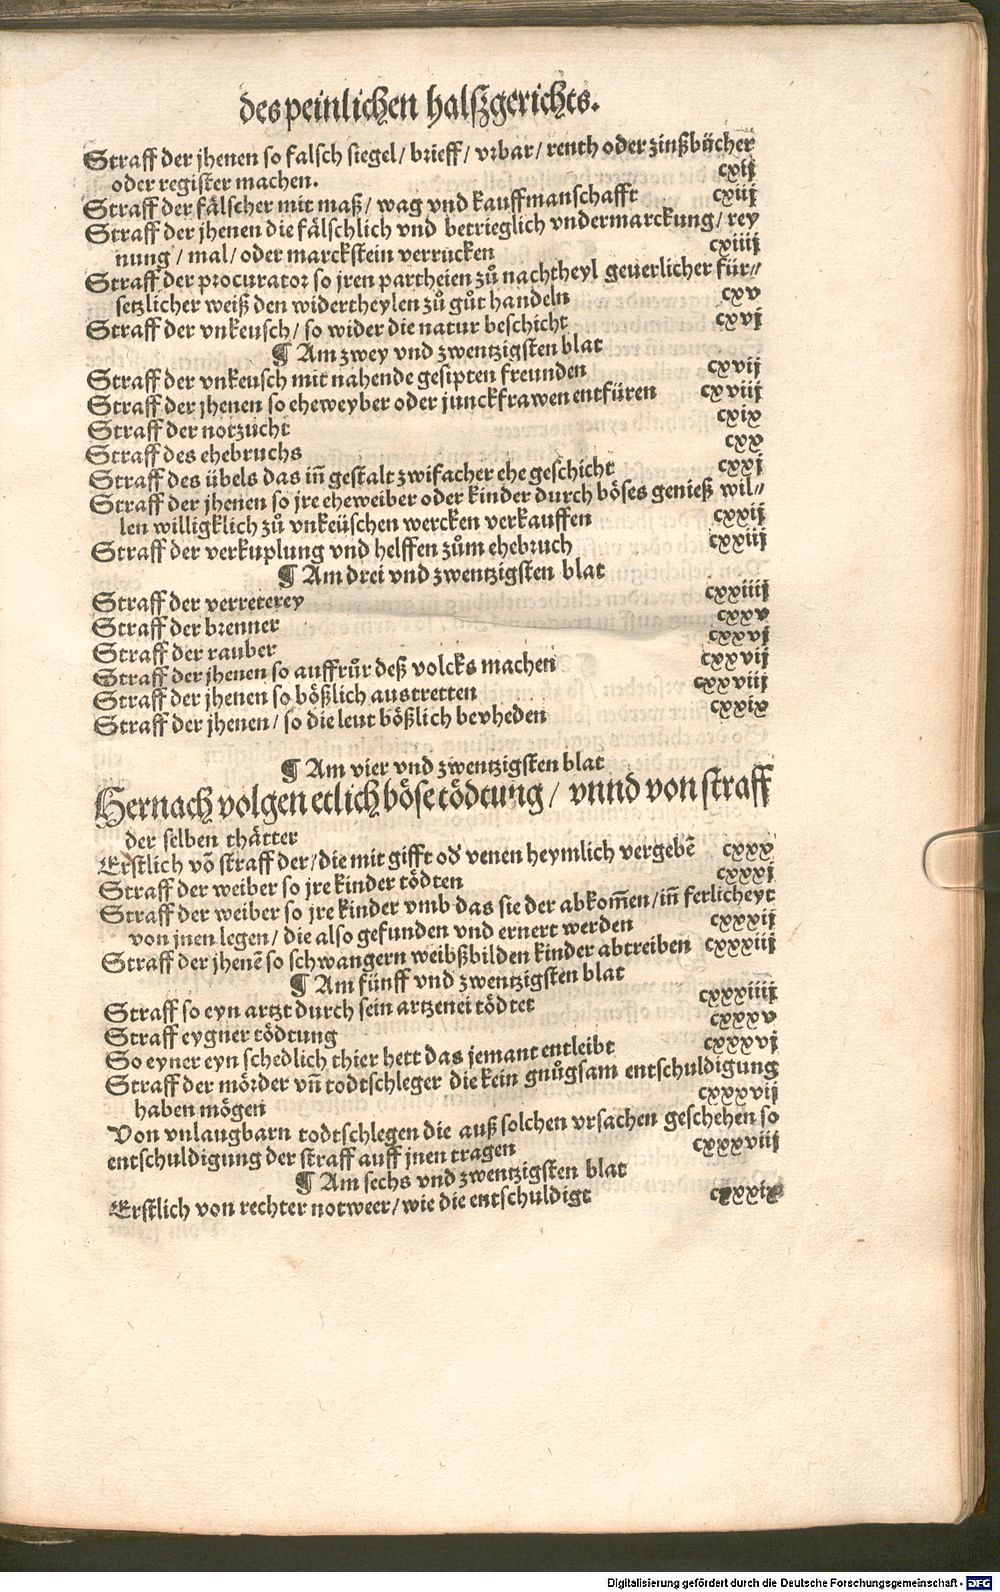 des peinlichen halßgerichts.
Straff der jhenen so falsch siegel/ brieff/ vrbar/ renth oder zinßbücher
oder register machen. cxij
Straff der fälscher mit maß/ wag vnd kauffmanschafft cxiij
Straff der jhenen die fälschlich vnd betrieglich vndermarckung/ rey
nung/ mal/ oder marckstein verrucken cxiiij
Straff der procurator so jren partheien zů nachtheyl geuerlicher für⸗
setzlicher weiß den widertheylen zů gůt handeln cxv
Straff der vnkeusch/ so wider die natur beschicht cxvj
¶ Am zwey vnd zwentzigsten blat
Straff der vnkeusch mit nahende gesipten freunden cxvij
Straff der jhenen so eheweyber oder junckfrawen entfüren cxviij
Straff der notzucht cxix
Straff des ehebruchs cxx
Straff des übels das iñ gestalt zwifacher ehe geschicht cxxj
Straff der jhenen so jre eheweiber oder kinder durch böses genieß wil⸗
len willigklich zů vnkeüschen wercken verkauffen cxxij
Straff der verkuplung vnd helffen zům ehebruch cxxiij
¶ Am drei vnd zwentzigsten blat
Straff der verreterey cxxiiij
Straff der brenner cxxv
Straff der rauber cxxvj
Straff der jhenen so auffrůr deß volcks machen cxxvij
Straff der jhenen so bößlich austretten cxxviij
Straff der jhenen/ so die leut bößlich bevheden cxxix
¶ Am vier vnd zwentzigsten blat
Hernach volgen etlich böse tödtung/ vnnd von straff
der selben thätter
Erstlich võ straff der/ die mit gifft oď venen heymlich vergebẽ cxxx
Straff der weiber so jre kinder tödten cxxxj
Straff der weiber so jre kinder vmb das sie der abkom̃en/ iñ ferlicheyt
von jnen legen/ die also gefunden vnd ernert werden cxxxij
Straff der jhenẽ so schwangern weibßbilden kinder abtreiben cxxxiij
¶ Am fünff vnd zwentzigsten blat
Straff so eyn artzt durch sein artzenei tödtet cxxxiiij
Straff eygner tödtung cxxxv
So eyner eyn schedlich thier hett das jemant entleibt cxxxvj
Straff der mörder vñ todtschleger die kein gnůgsam entschuldigung
haben mögen cxxxvij
Von vnlaugbarn todtschlegen die auß solchen vrsachen geschehen so
entschuldigung der straff auff jnen tragen cxxxviij
¶ Am sechs vnd zwentzigsten blat
Erstlich von rechter notweer/ wie die entschuldigt cxxxix
Digitalisierung gefördert durch die Deutsche Forschungsgemeinschaft - DFG